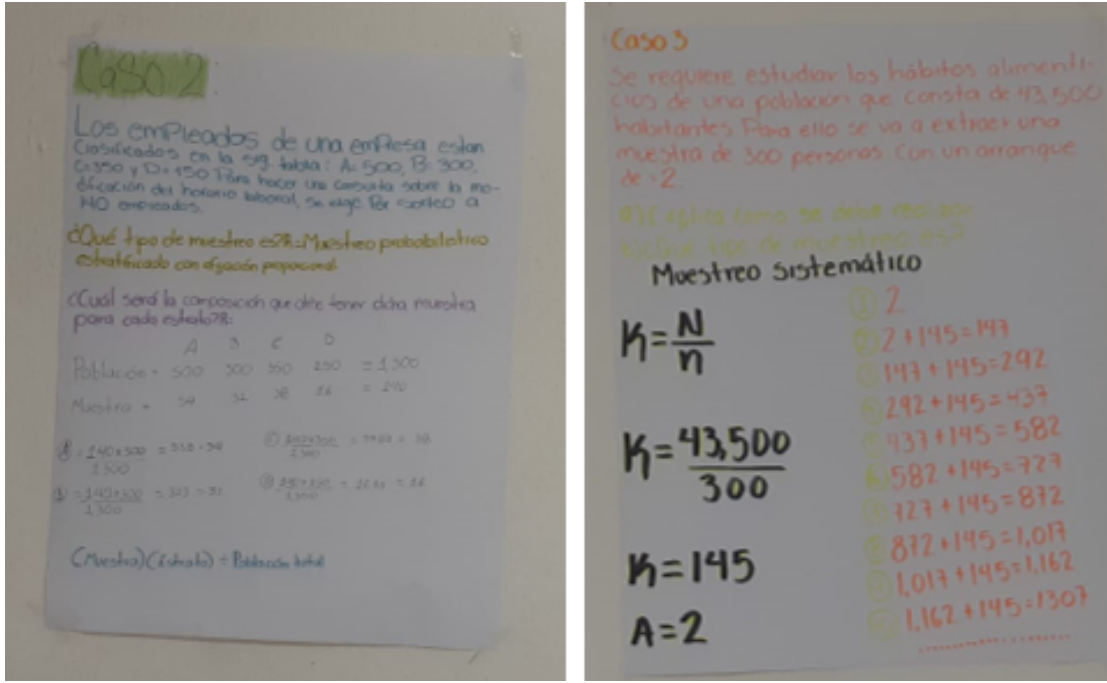 Caso 2
Los empleados de una empresa estan
Clasificados en la sig. tabla: A=500, B=300,
C=350 y D=150 Para hacer una consulta sobre la mo-
dificación del horario laboral, se elige Por sorteo a
140 empleados.
¿Qué tipo de muestreo es?R=Muestreo probabilistico
estratificado con afijación proporcional
¿Cuál será la composición que debe tener dicha muestra
para cada estrato?R:
A B C D
Población = 500 300 350 = 1300
Muestra =
= 140x500
1300
= 140x300
1300
(Muestra)(Estrato) ÷ Población total
Caso 3
Se requiere estudiar los hábitos alimenti-
cios de una población que consta de 43,500
habitantes. Para ello se va a extraer una
muestra de 300 personas. Con un arranque
de = 2.
a) Explica como se debe realizar
b) ¿Qué tipo de muestreo es?
Muestreo sistemático
K=N
n
K=43,500
300
K=145
A=2
① 2
② 2+145=147
147+145=292
292+145=437
437+145=582
582+145=727
727+145=872
872+145=1,017
1,017+145=1,162
1,162+145=1307
...................